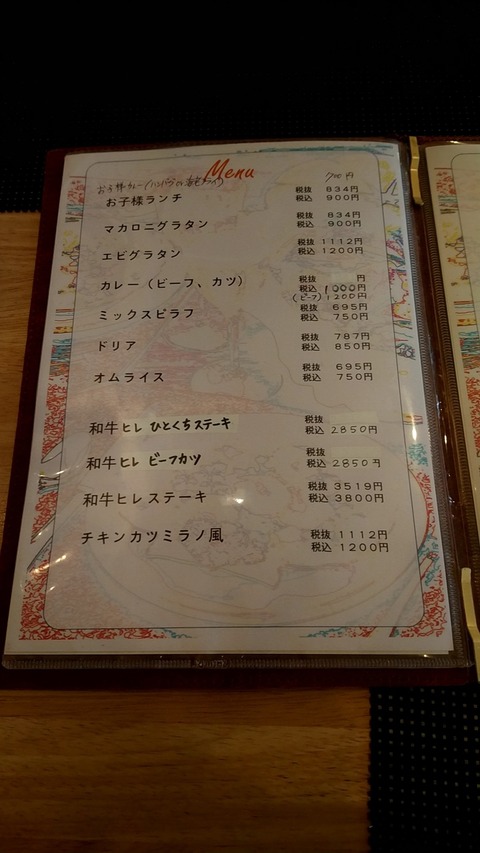 Menu
お子様カレー(ハンバーグ 700円
お子様ランチ 税抜 834円
税込 900円
マカロニグラタン 税抜 834円
税込 900円
エビグラタン 税抜 1112円
税込 1200円
カレー(ビーフ、カツ) 税抜 円
税込 1000円
(ビーフ) 1200円
ミックスピラフ 税抜 695円
税込 750円
ドリア 税抜 787円
税込 850円
オムライス 税抜 695円
税込 750円
和牛ヒレ ひとくちステーキ 税抜
税込 2850円
和牛ヒレ ビーフカツ 税抜
税込 2850円
和牛ヒレステーキ 税抜 3519円
税込 3800円
チキンカツミラノ風 税抜 1112円
税込 1200円